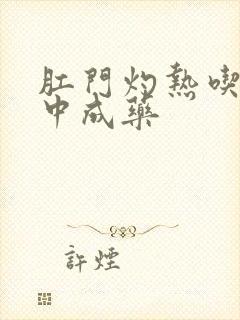 肛門灼熱喫
中成藥
許煙